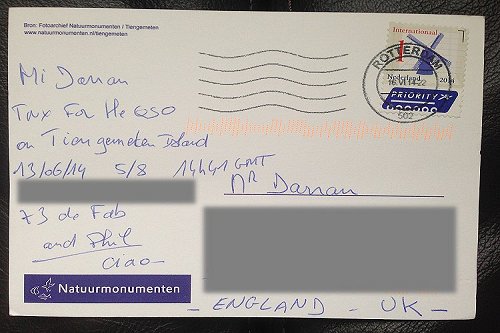 Bron: Fotoarchief Natuurmonumenten / Tiengemeten
www.natuurmonumenten.nl/tiengemeten
Internationaal
1
Nederland 2014
PRIORITY
ROTTERDAM
16.VI.14-22
502
Mi Darran
TNX For He QSO
on Tiengemeten Island
13/06/14 5/8 1444 GMT
73 de Fab
and Phil
Ciao-
Mr Darran
- ENGLAND - UK -
Natuurmonumenten